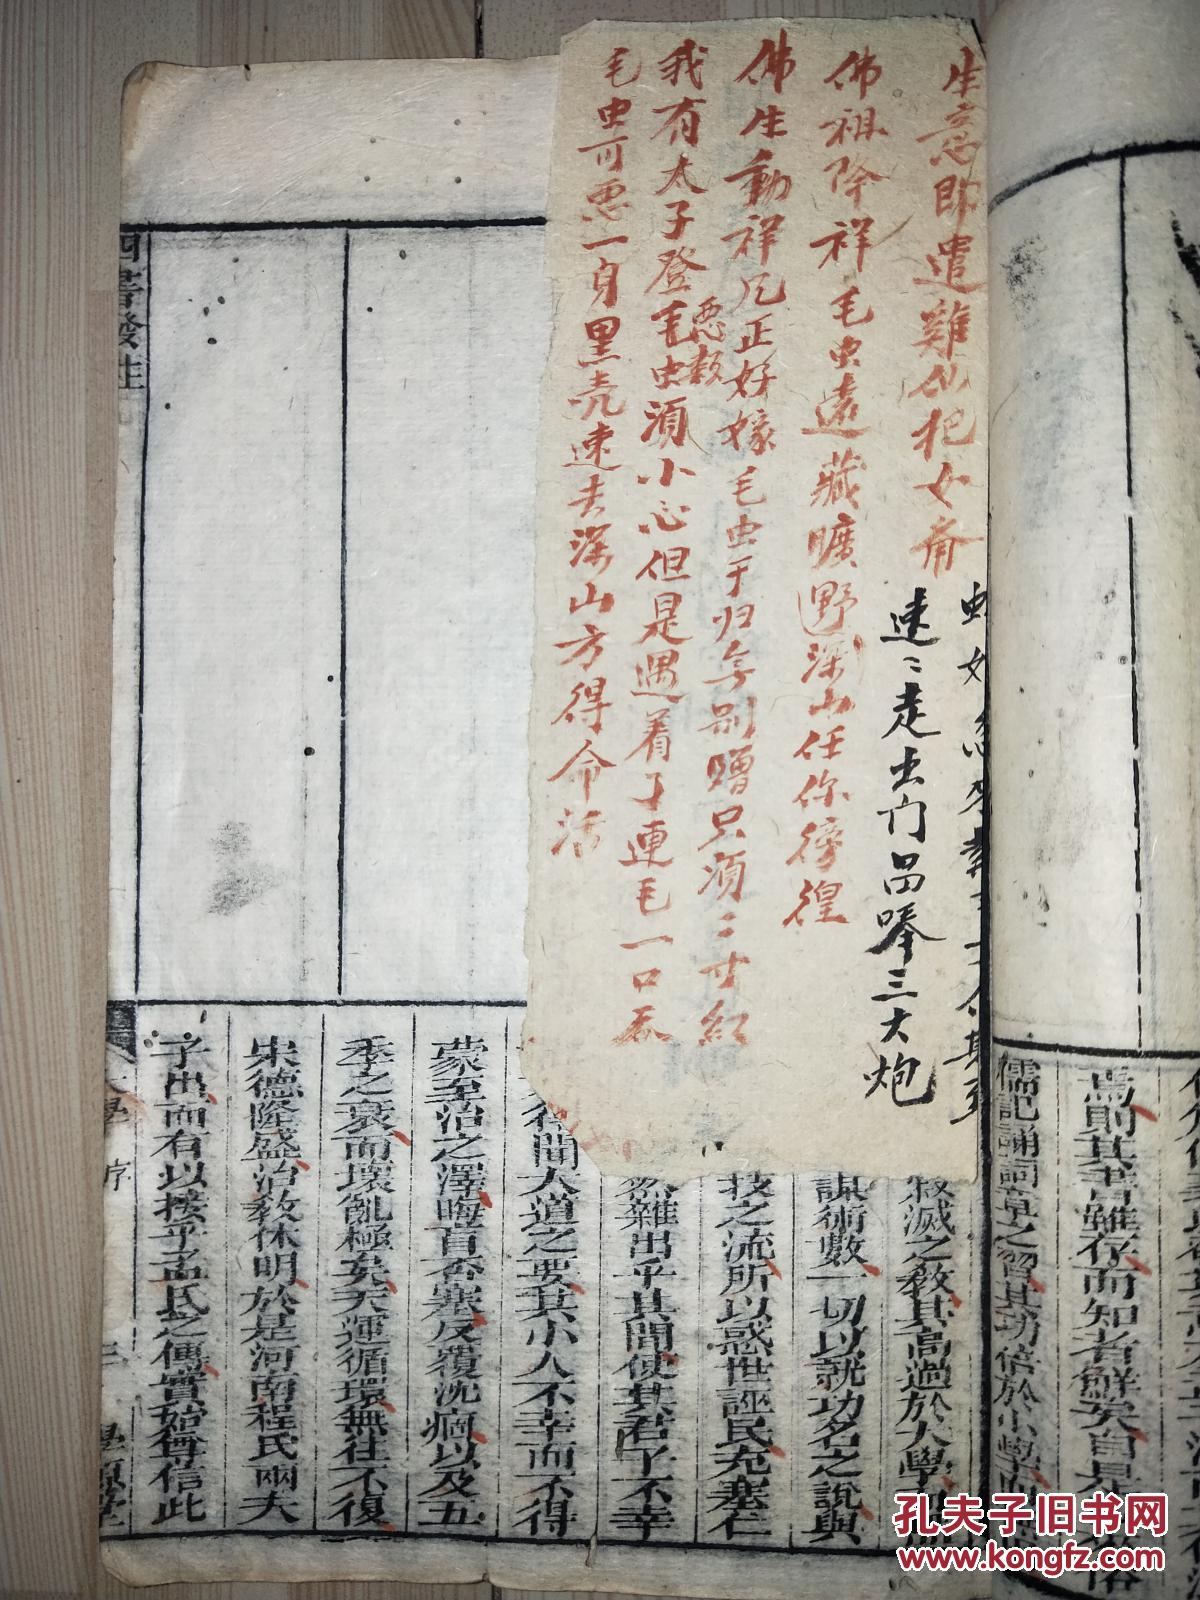 焉則其書雖存而知者鮮矣自是
儒記誦詞章之習其功倍於小學而
寂滅之教其高過於大學
謀術數一切以就功名之說與
技之流所以惑世誣民充塞仁
雜出乎其間使其君子不幸
得聞大道之要其小人不幸而不得
蒙至治之澤晦盲否塞反覆沈痼以及五
季之衰而壞亂極矣天運循環無往不復
宋德隆盛治教休明於是河南程氏兩夫
子出而有以接乎孟氏之傳實始尊信此
四書發註
大學 序
三
生意即遣雞仙把女斉
速〻走出门
三大炮
佛祖降祥毛虫遠藏曠野深山任你徬徨
佛生動祥凡正好嫁毛虫于归
别贈只須二寸紅
我有太子登毛虫須小心但是遇着了連毛一口吞
惡数
毛虫可恶一身黑壳速去深山方得命活
孔夫子旧书网
www.kongfz.com